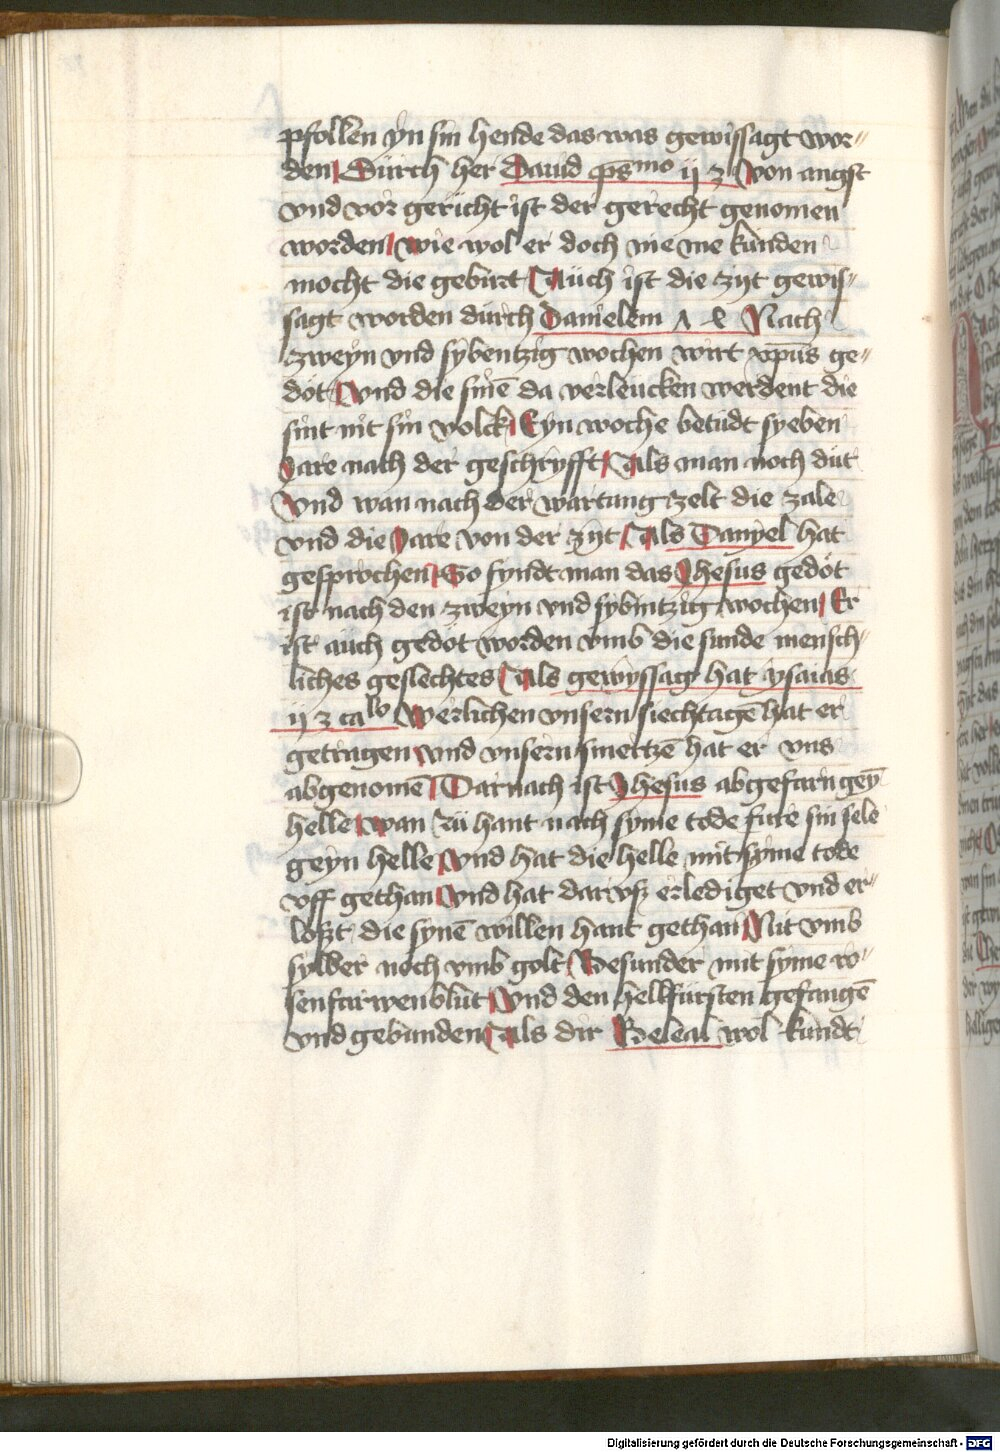 pfollen yn sin hende das was gewissagt wor-
den Dürch her Dauid psmo ij z Von angst
vnd vor gericht ist der gerecht genomen
worden wie wol er doch nie me kunden
mocht die gebürt Aüch ist die zyt gewis-
sagt worden dürch Danielem Nach
zweyn vnd sybentzig wochen wirt xpus ge-
dot Vnd die sinē da verleücken werdent die
sint nit sin volck Eyn woche betüdt syeben
Jare nach der geschryfft Als man noch düt
Vnd wan nach der wartung zelt die zale
vnd die Jare von der zyt Als Danyel hat
gesprochen So fyndt man das Jhesus gedöt
ist nach den zweyn vnd sybintzig wochen Er
ist aüch gedöt worden vmb die sunde mensch-
liches geslechtes Als gewyssagt hat ysaias
ij z calo Werlichen vnsern siechtagē hat er
getragen vnd vnsern smertzē hat er vns
abgenomē Darnach ist Jhesus abgefarn gey
helle wan zü hant nach syme tode fure sin sele
geyn helle Vnd hat die helle mit syme tode
vff gethan Vnd hat darvsz erlediget vnd er-
loszt die synē willen hant gethan Nit vmb
sylber noch vmb golt Besunder mit syme ro-
senfarwen blüt Vnd den hellfürsten gefangē
vnd gebunden Als dir Beleal wol kündt
Digitalisierung gefördert durch die Deutsche Forschungsgemeinschaft - DFG